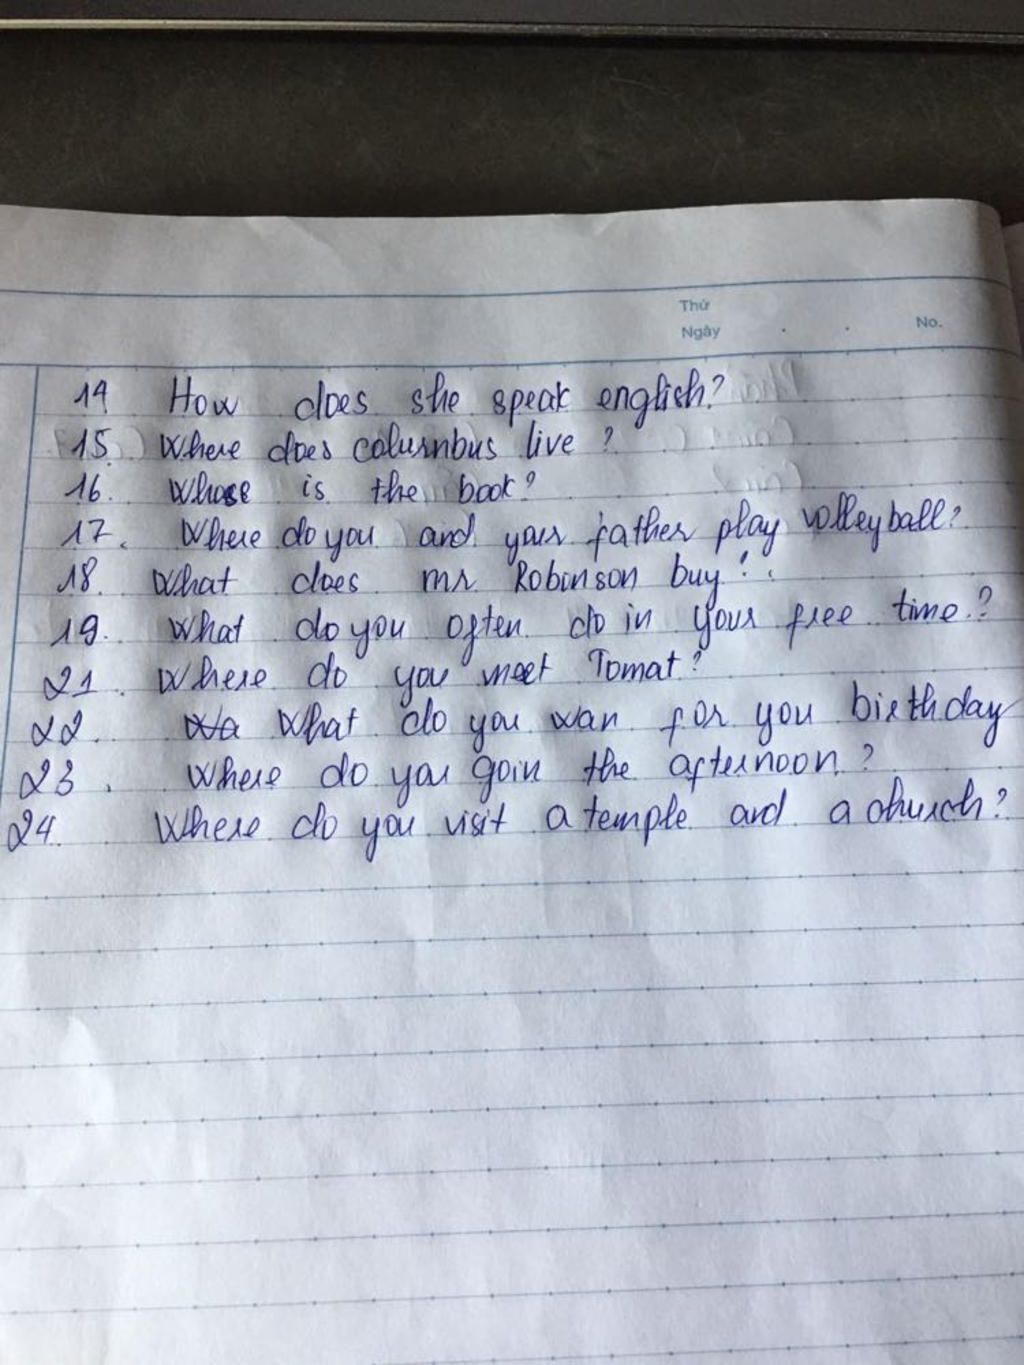 Thứ
Ngày . . No.
14 How does she speak english?
15. Where does columbus live ?
16. Whose is the book?
17. Where do you and your father play volleyball?
18. What does mr Robinson buy?
19. What do you often do in your free time?
21. Where do you meet Tomat?
22. Wa What do you wan for you birthday
23. Where do you goin the afternoon?
24. Where do you visit a temple and a church?